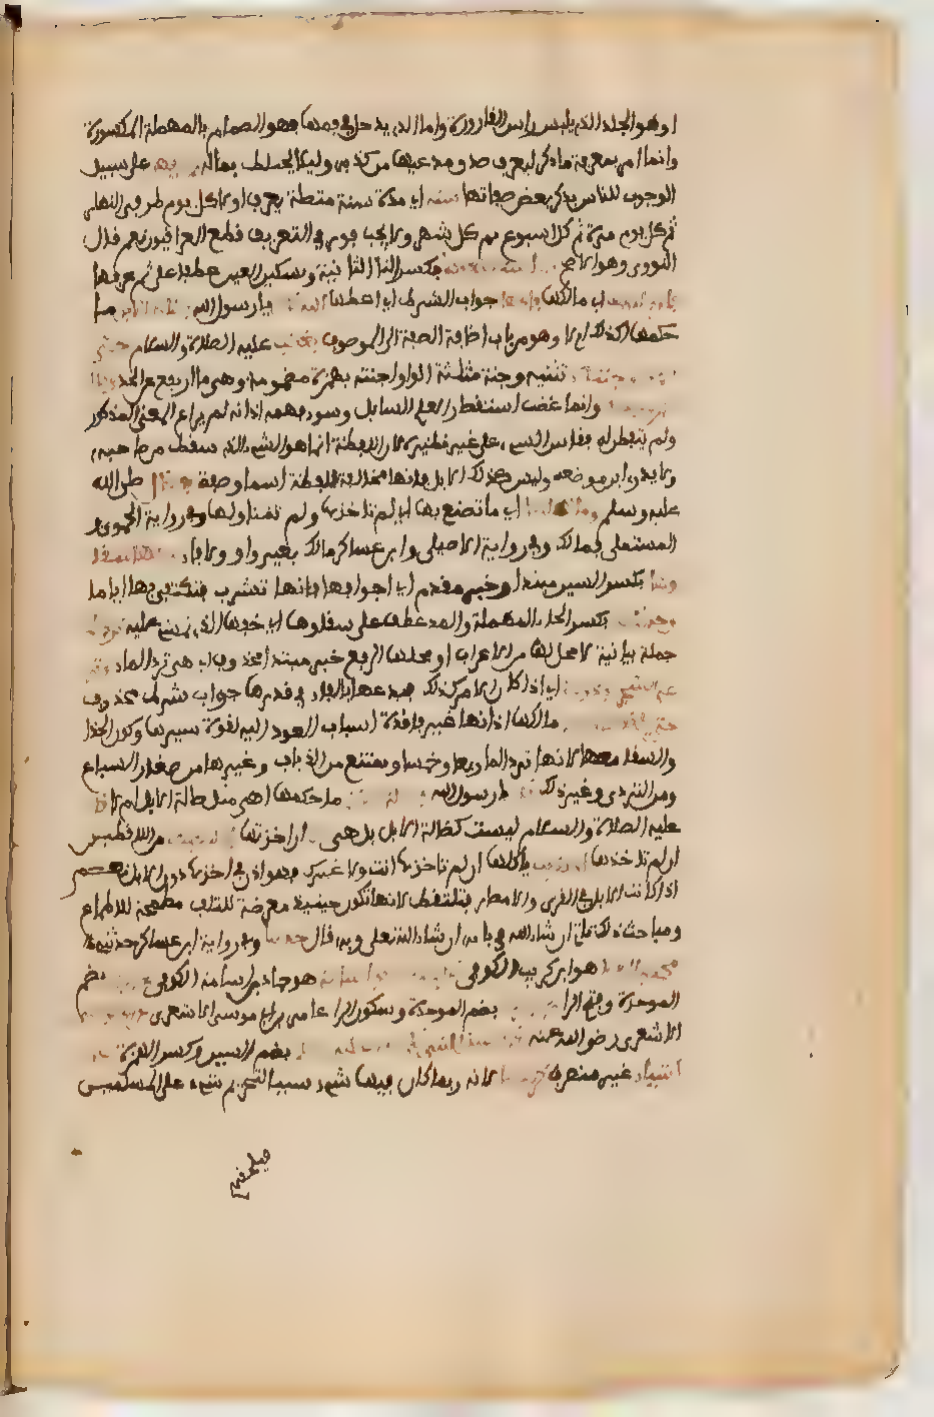 او هو الجلد الذي يلبس راس القارورة واما الذي يدخل في فمها فهو الصمام بالمهملة المكسورة
وانما امر بمعرفة ما ذكر ليعرف صدق مدعيها من كذبه وليلا يختلط بماله على سبيل
الوجوب للناس بذكر بعض صفاتها سنة اي مدة سنة متصلة يعرف اولا كل يوم طرفي النهار
ثم كل يوم مرة ثم كل اسبوع ثم كل شهر ولا يجب فور في التعريف قطع العراقيون نعم قال
النووي وهو الاصح بكسر التا الثانية وسكون العين عطفا على ثم عرفها
اي مالكها جواب الشرط اي اعطها يا رسول الله ما
حكمها اكذلك ام لا وهو من باب اضافة الصفة الى الموصوف فغضب عليه الصلاة والسلام حتى
تثنية وجنة مثلثة الواو اجنته بهمزة مضمومة وهي ما ارتفع من الخد
وانما غضب استقصارا لعلم السايل وسوء فهمه اذ انه لم يراع المعنى المذكور
ولم يتفطن له فقاس الشيء على غير نظيره لان اللقطة انما هو الشيء الذي سقط من صاحبه
ولا يدري اين موضعه وليس كذلك الابل فانها مخالفة للقطة اسما وصفة صلى الله
عليه وسلم اي ما تصنع بها اي لم تاخذها ولم تتناولها وفي رواية الحموي و
المستملي فمالك وفي رواية الاصيلي وابن عساكر مالك بغير واو ولا فاء
بكسر السين مبتدا وخبر مقدم اي اجوافها فانها تشرب فتكتفي بها اياما
بكسر الحاء المهملة والمد عطف على سقاوها اي خفها الذي تمشي عليه
جملة بيانية لا محل لها من الاعراب او محلها الرفع خبر مبتدا محذوف اي هي ترد الماء
اي اذا كان الامر كذلك فدعها فالفاء في فذرها جواب شرط محذوف
مالكها اذ انها غير فاقدة اسباب العود اليه لقوة سيرها وكون الحذا
والسقا معها لانها ترد الماء ربعا وخمسا وتمتنع من الذياب وغيرها من صغار السباع
ومن التردي وغير ذلك يا رسول الله ما حكمها اهي مثل ضالة الابل ام لا
عليه الصلاة والسلام ليست كضالة الابل بل هي ان اخذتها من اللاقطين
ان لم تاخذها ياكلها ان لم تاخذها انت ولا غيرك فهو اذن في اخذها دون الابل نعم
اذا كانت الابل في القرى والامصار فتلتقط لانها تكون حينيذ معرضة للتلف مطمحة للاطماع
ومباحث ذلك تاتي ان شاء الله في بابه ان شاء الله تعلى وبه قال وفي رواية ابن عساكر حدثني
هو ابن كريب الكوفي هو حماد بن اسامة الكوفي بضم
الموحدة وفتح الرا بضم الموحدة وسكون الرا عامر بن ابي موسى الاشعري
الاشعري رضي الله عنه بضم السين وكسر الهمزة
اشياء غير منصرف لانه ربما كان فيها شيء سببا لتحريم شيء على المسلمين